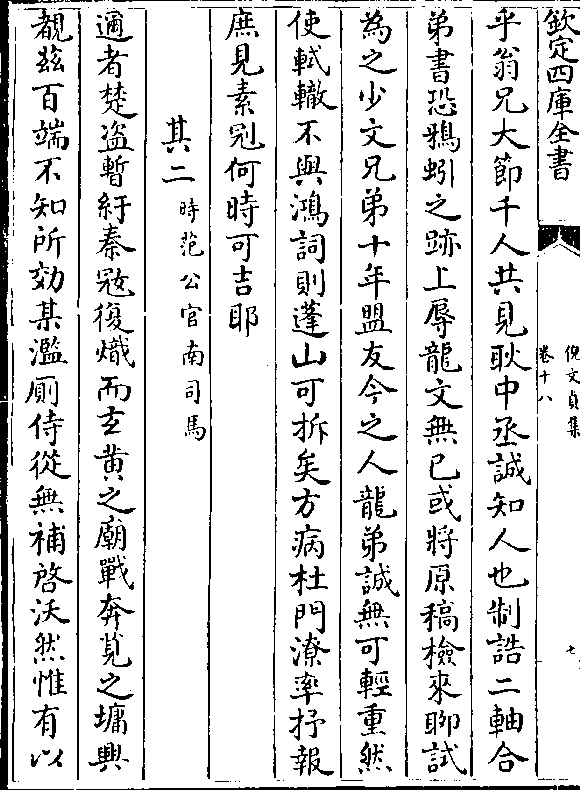 欽定四庫全書
倪文貞集
卷十八
七
乎翁兄大節千人共見耿中丞誠知人也制誥二軸合
弟書恐鴉蚓之跡上辱龍文無已或將原稿檢來聊試
為之少文兄弟十年盟友今之人龍弟誠無可輕重然
使軾轍不與鴻詞則蓬山可拆矣方病杜門潦率抒報
庶見素冠何時可吉耶
其二時范公官南司馬
邇者楚盜暫紓秦寇復熾而玄黃之廟戰奔莧之墉興
覩茲百端不知所効某濫厠侍從無補啓沃然惟有以